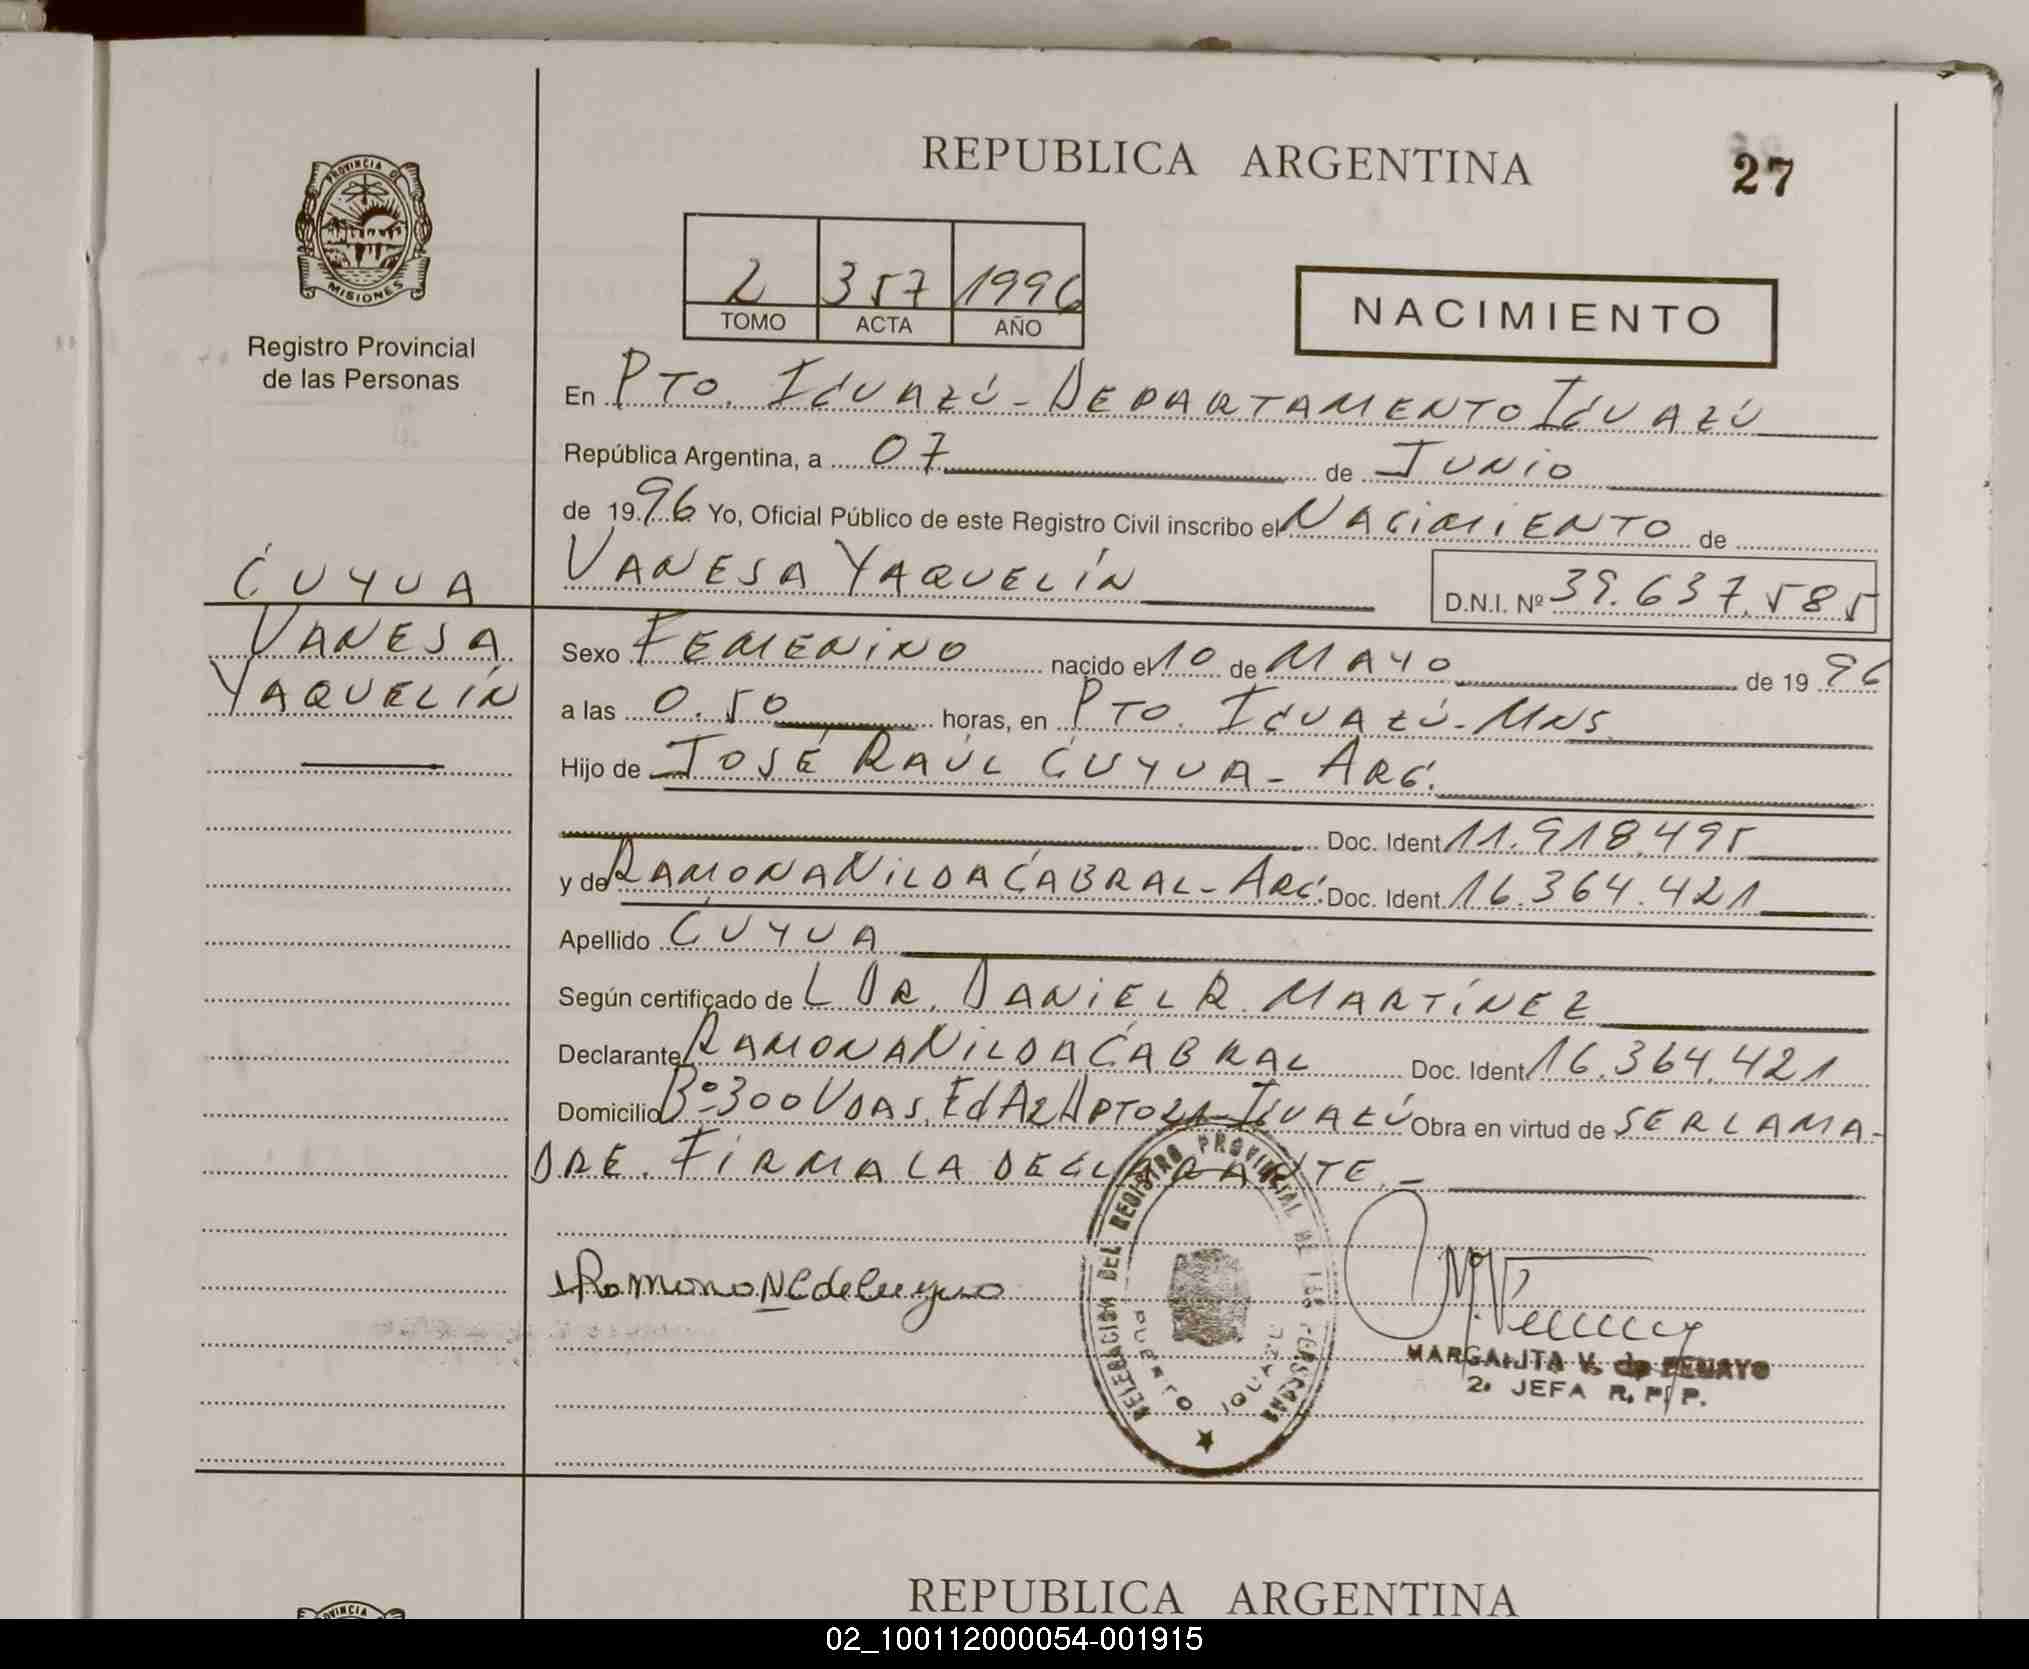 REPUBLICA ARGENTINA
27
PROVINCIA DE
MISIONES
Registro Provincial
de las Personas
2 357 1996
TOMO ACTA AÑO
NACIMIENTO
En PTO. IGUAZÚ - DEPARTAMENTO IGUAZÚ
República Argentina, a 07 de JUNIO
de 1996 Yo, Oficial Público de este Registro Civil inscribo el NACIMIENTO de
VANESA YAQUELÍN
D.N.I. Nº 39.637.585
CUYUA
VANESA
YAQUELÍN
Sexo FEMENINO nacido el 10 de MAYO de 1996
a las 0.50 horas, en PTO. IGUAZÚ - MNS.
Hijo de JOSÉ RAÚL CUYUA - ARG.
Doc. Ident 11.918.495
y de RAMONA NILDA CABRAL - ARG. Doc. Ident. 16.364.421
Apellido CUYUA
Según certificado de L DR. DANIEL R. MARTÍNEZ
Declarante RAMONA NILDA CABRAL Doc. Ident. 16.364.421
Domicilio Bº 300 VDAS. Ed A2 DPTO 21 - IGUAZÚ Obra en virtud de SER LA MA-
DRE. FIRMA LA DECLARANTE. -
Ramona N C de Cuyua
DELEGACION DEL REGISTRO PROVINCIAL DE LAS PERSONAS
PUERTO IGUAZU
MARGARITA V. de
2. JEFA R. P. P.
REPUBLICA ARGENTINA
PROVINCIA
02_100112000054-001915